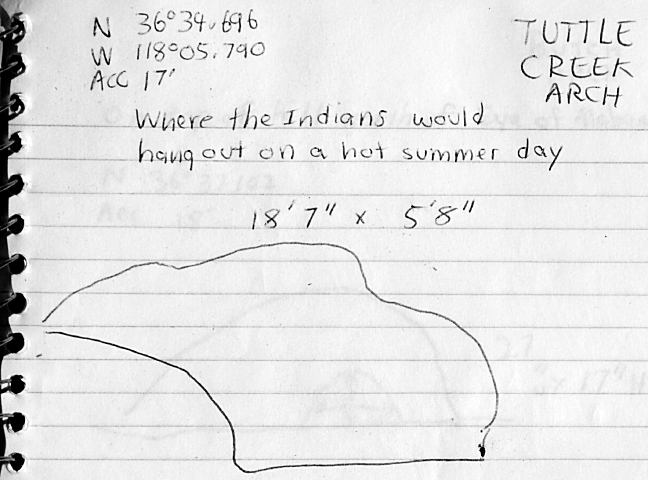 N 36°34.696
W 118°05.790
Acc 17'
TUTTLE
CREEK
ARCH
Where the Indians would
hang out on a hot summer day
18'7" x 5'8"